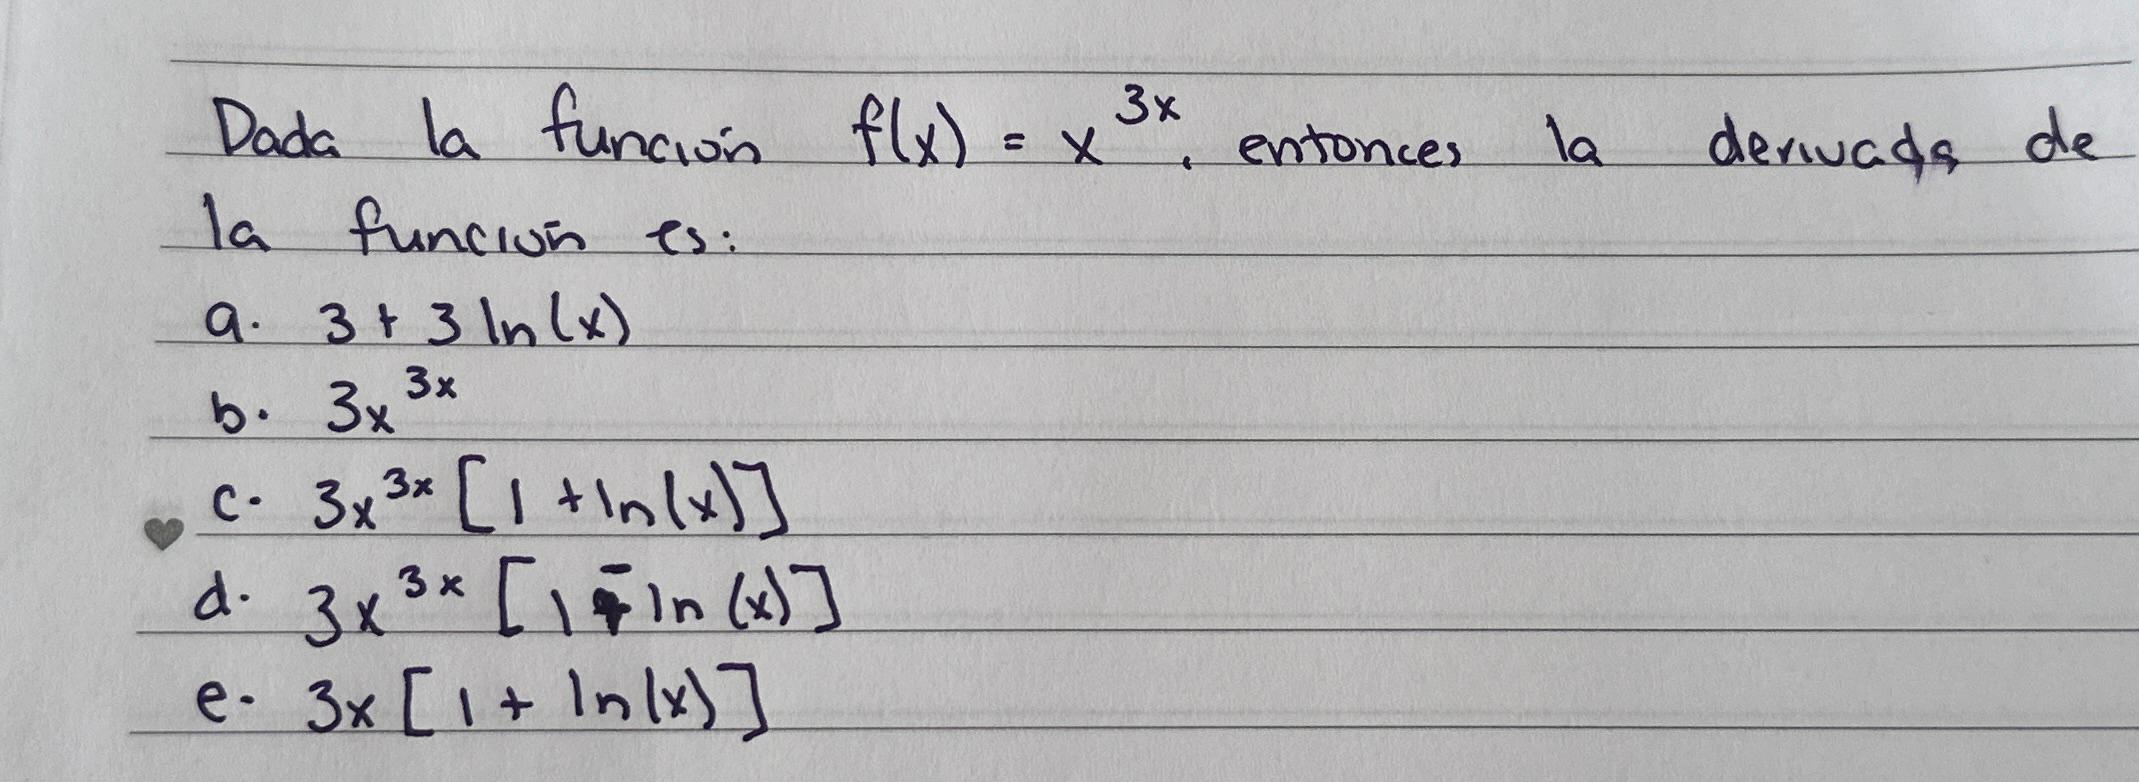 Dada la función f(x) = x^3x, entonces la derivada de
la función es:
a. 3 + 3 ln(x)
b. 3x^3x
c. 3x^3x [1 + ln(x)]
d. 3x^3x [1 - ln(x)]
e. 3x [1 + ln(x)]